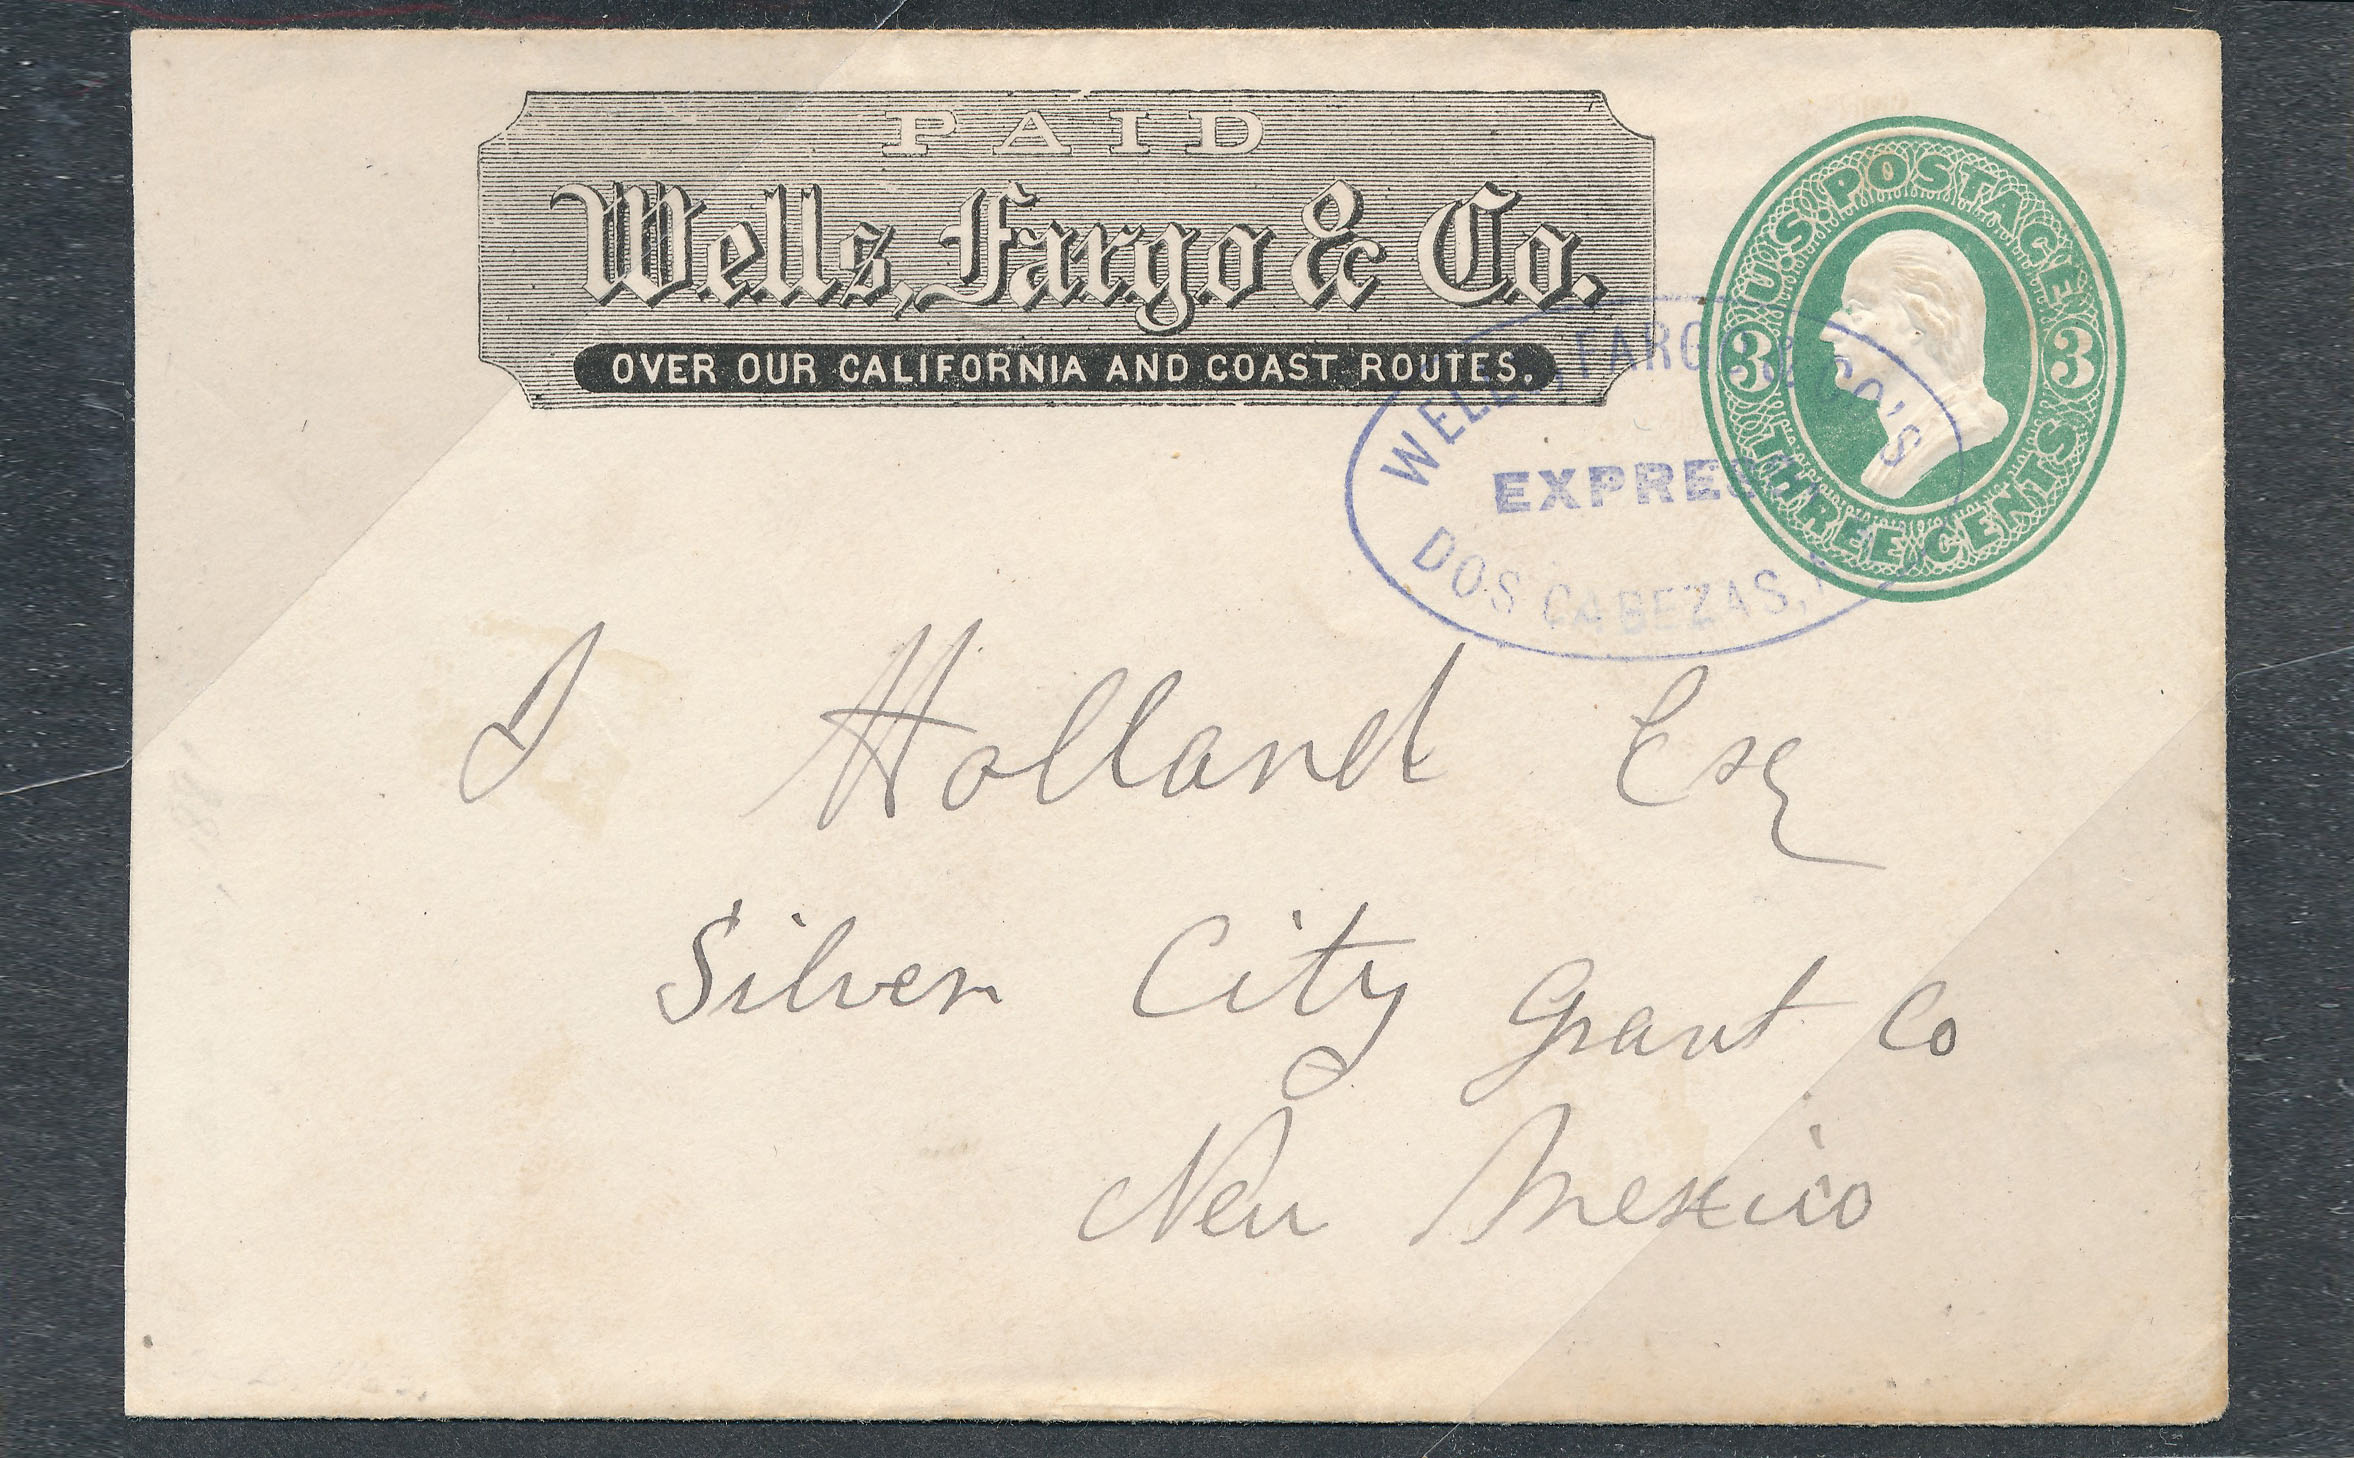 PAID
Wells, Fargo & Co.
OVER OUR CALIFORNIA AND COAST ROUTES.
U.S. POSTAGE
3 3
THREE CENTS
WELLS, FARGO & CO'S
EXPRESS
DOS CABEZAS,
Holland Esq
Silver City Grant Co
New Mexico